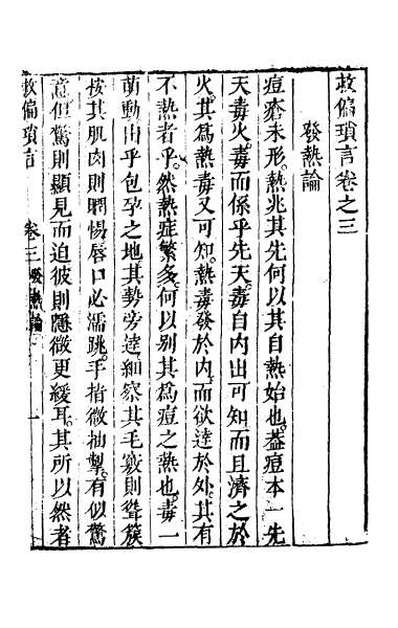 救偏瑣言卷之三
發熱論
痘瘡未形。熱兆其先何以其自熱始也。蓋痘本一先
天毒火。毒而係乎先天。毒自内出可知而且濟之於
火。其為熱毒又可知。熱毒發於内。而欲達於外。其有
不熱者乎。然熱症繁多。何以别其為痘之熱也。毒一
萌動由乎包孕之地。其勢旁達。細察其毛竅則聳簇
按其肌肉則瞤惕唇口必濡跳。手指微抽掣。有似驚
意但驚則顯見而迫彼則隱微更緩耳。其所以然者
救偏瑣言
卷三發熱論
一